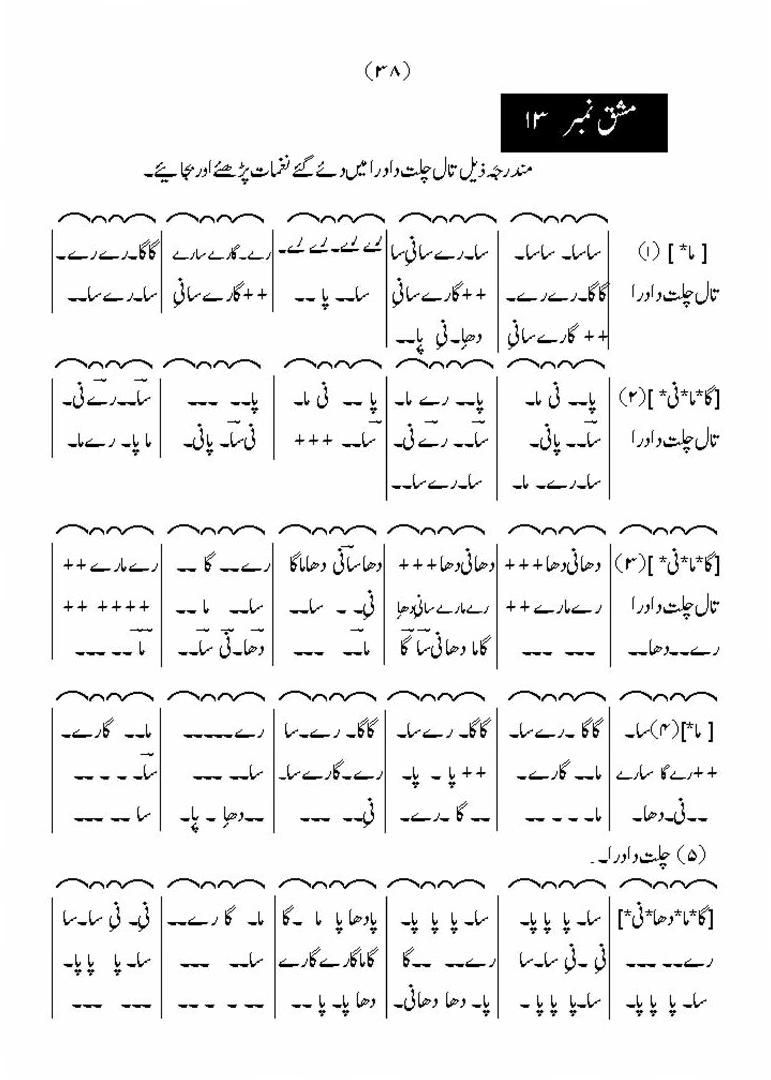 (۳۸)
مشق نمبر ۱۳
مندرجہ ذیل تال چلت دادرا میں دئے گئے نغمات پڑھئے اور بجائیے۔
(۱) [ ما* ] ساسا۔ ساسا۔ | سا۔رے سانی سا | لے لے۔ لے لے۔ | رے۔گارے سارے | گاگا۔رے رے۔
تال چلت دادرا گاگا۔رے رے۔ | ++گارے سانی | سا۔۔ پا ۔۔ | ++گارے سانی | سا۔رے سا۔۔
++ گارے سانی | دھا۔نی پا۔۔
(۲) [گا*ما*نی*] پا۔۔ نی ما۔ | پا۔۔ رے ما۔ | پا ۔۔ نی ما۔ | پا۔۔ ۔۔۔ | سا۔۔رے نی۔
تال چلت دادرا سا۔۔ پانی۔ | سا۔۔ رے نی۔ | سا۔۔ +++ | نی سا۔ پانی۔ | ما پا۔ رے ما۔
سا۔رے۔ ما۔ | سا۔رے سا۔۔
(۳) [گا*ما*نی*] دھانی دھا+++ | دھانی دھا+++ | دھاسانی دھاماگا | رے۔۔ گا ۔۔ | رے مارے++
تال چلت دادرا رے مارے++ | رے مارے سانی دھا | نی۔ ۔ سا۔۔ | سا۔۔ ما ۔۔ | ++++ ++
رے۔۔دھا۔۔ | ۔۔۔ ۔۔۔ | گاما دھانی سا گا | ما۔۔ ۔۔۔ | دھا۔نی سا۔۔ | ما ۔۔ ۔۔۔
(۴) [ما*] سا۔ | گاگا ۔رے سا۔ | گاگا۔ رے سا۔ | گاگا۔ رے۔سا | رے۔۔۔۔۔ | ما۔۔ گارے۔
++رے گا سارے | ما۔۔ گارے۔ | ++ پا ۔ پا۔ | رے۔گارے سا۔ | سا۔۔ ۔۔۔ | سا۔ ۔ ۔ ۔۔
۔۔نی۔دھا۔ | ما۔ ۔ ۔ ۔۔ | ۔۔ گا ۔رے۔ | نی۔۔ ۔۔۔ | ۔۔دھا ۔ پا۔ | سا ۔۔ ۔۔۔
(۵) چلت دادرا۔
[گا*ما*دھا*نی*] | سا۔ پا پا پا۔ | سا۔ پا پا پا۔ | پادھا پا ما ۔گا | ما۔ گا رے۔۔ | نی۔ نی سا۔سا
رے۔۔ ۔۔۔ | نی ۔نی سا۔سا | رے۔۔ ۔۔گا | گاماگارے گارے | سا۔۔ ۔۔۔ | سا۔ پا پا پا۔
سا۔ پا پا پا۔ | سا۔پا پا پا ۔ | پا۔ دھا دھانی۔ | دھا پا۔ پا ۔۔ | ۔۔ ۔ ۔ ۔۔ | ۔۔۔ ۔۔۔